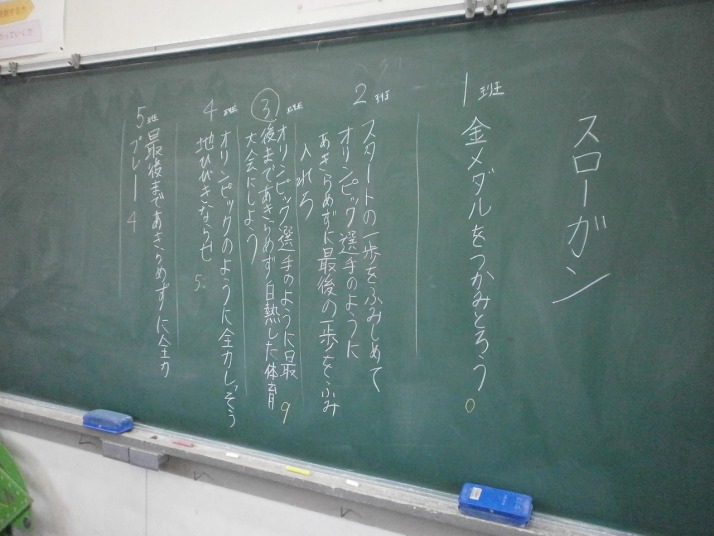 スローガン
1班
金メダルをつかみとろう
0
2班
スタートの一歩をふみしめて
オリンピック選手のように
あきらめずに最後の一歩をふみ
入れろ
③班
オリンピック選手のように最
後まであきらめず白熱した体育
大会にしよう
9
4班
オリンピックのように全力しっそう
地ひびきならせ
5
5班
最後まであきらめずに全力
プレー
4